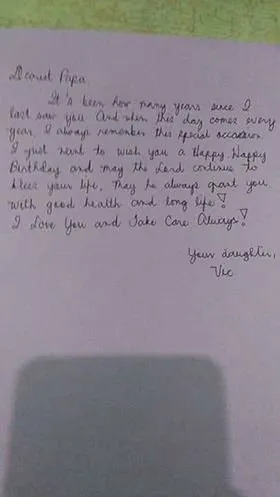 Dearest Papa,
It's been how many years since I
last saw you. And when this day comes every
year, I always remember this special occasion.
I just want to wish you a Happy, Happy
Birthday and may the Lord continue to
bless your life, may he always grant you
with good health and long life!
I Love You and Take Care Always!
Your daughter,
Vic